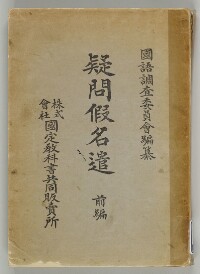 國語調査委員會編纂
疑問假名遣 前編
株式會社 國定敎科書共同販賣所